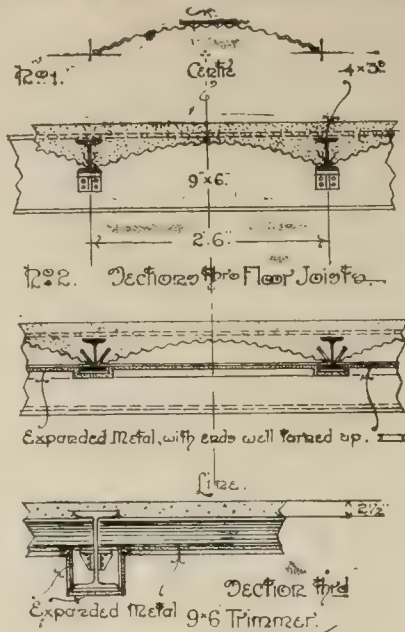 No1.
Centre
4 × 3
6"
9" × 6"
2' 6"
No2. Sections thro Floor Joists.
Expanded Metal, with ends well turned up.
Line.
2½
Section thro
Expanded Metal 9 × 6 Trimmer.